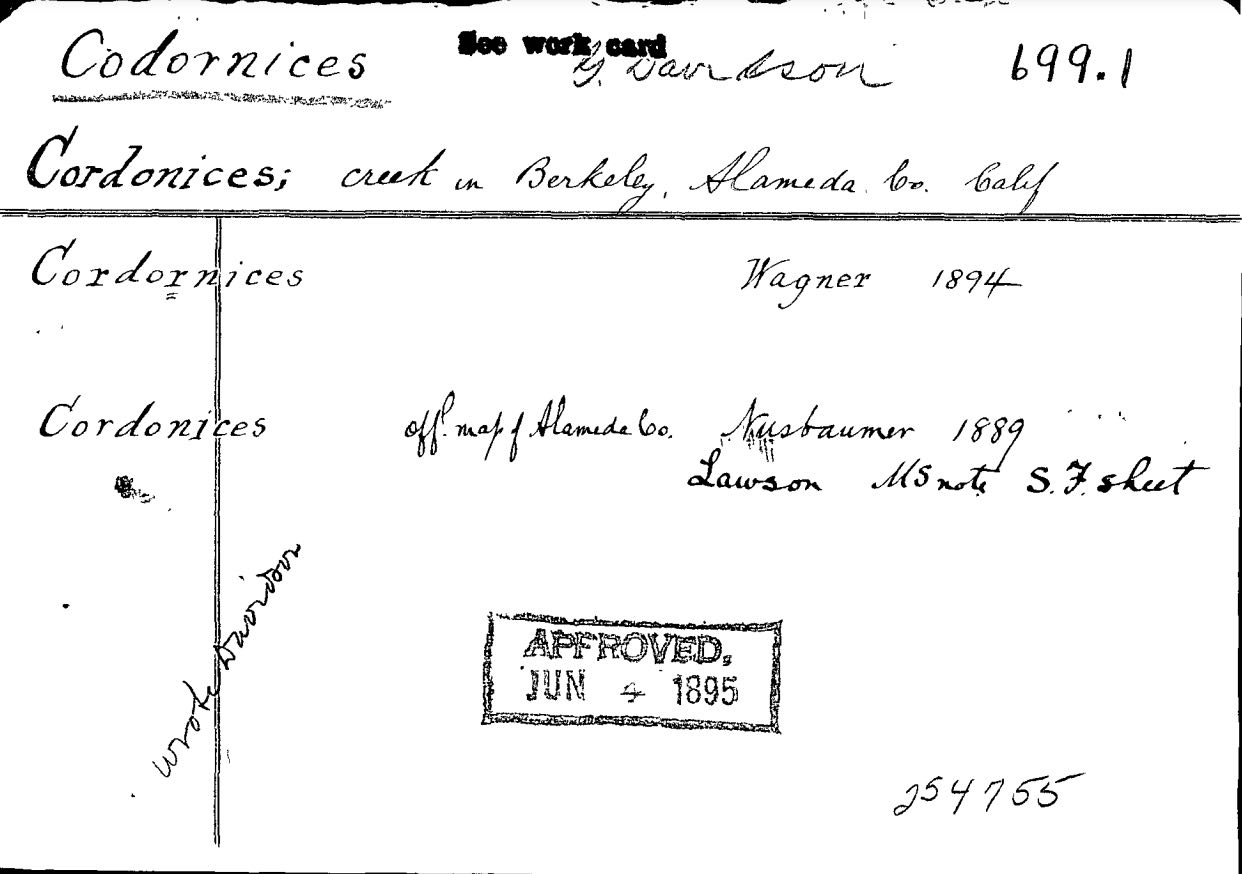 See work card
Codornices G. Davidson 699.1
Cordonices; creek in Berkeley, Alameda Co. Calif
Cordornices Wagner 1894
Cordonices off. map of Alameda Co. Nusbaumer 1889
Lawson MS note S.F. sheet
wrote Davidson
APPROVED.
JUN 4 1895
254755